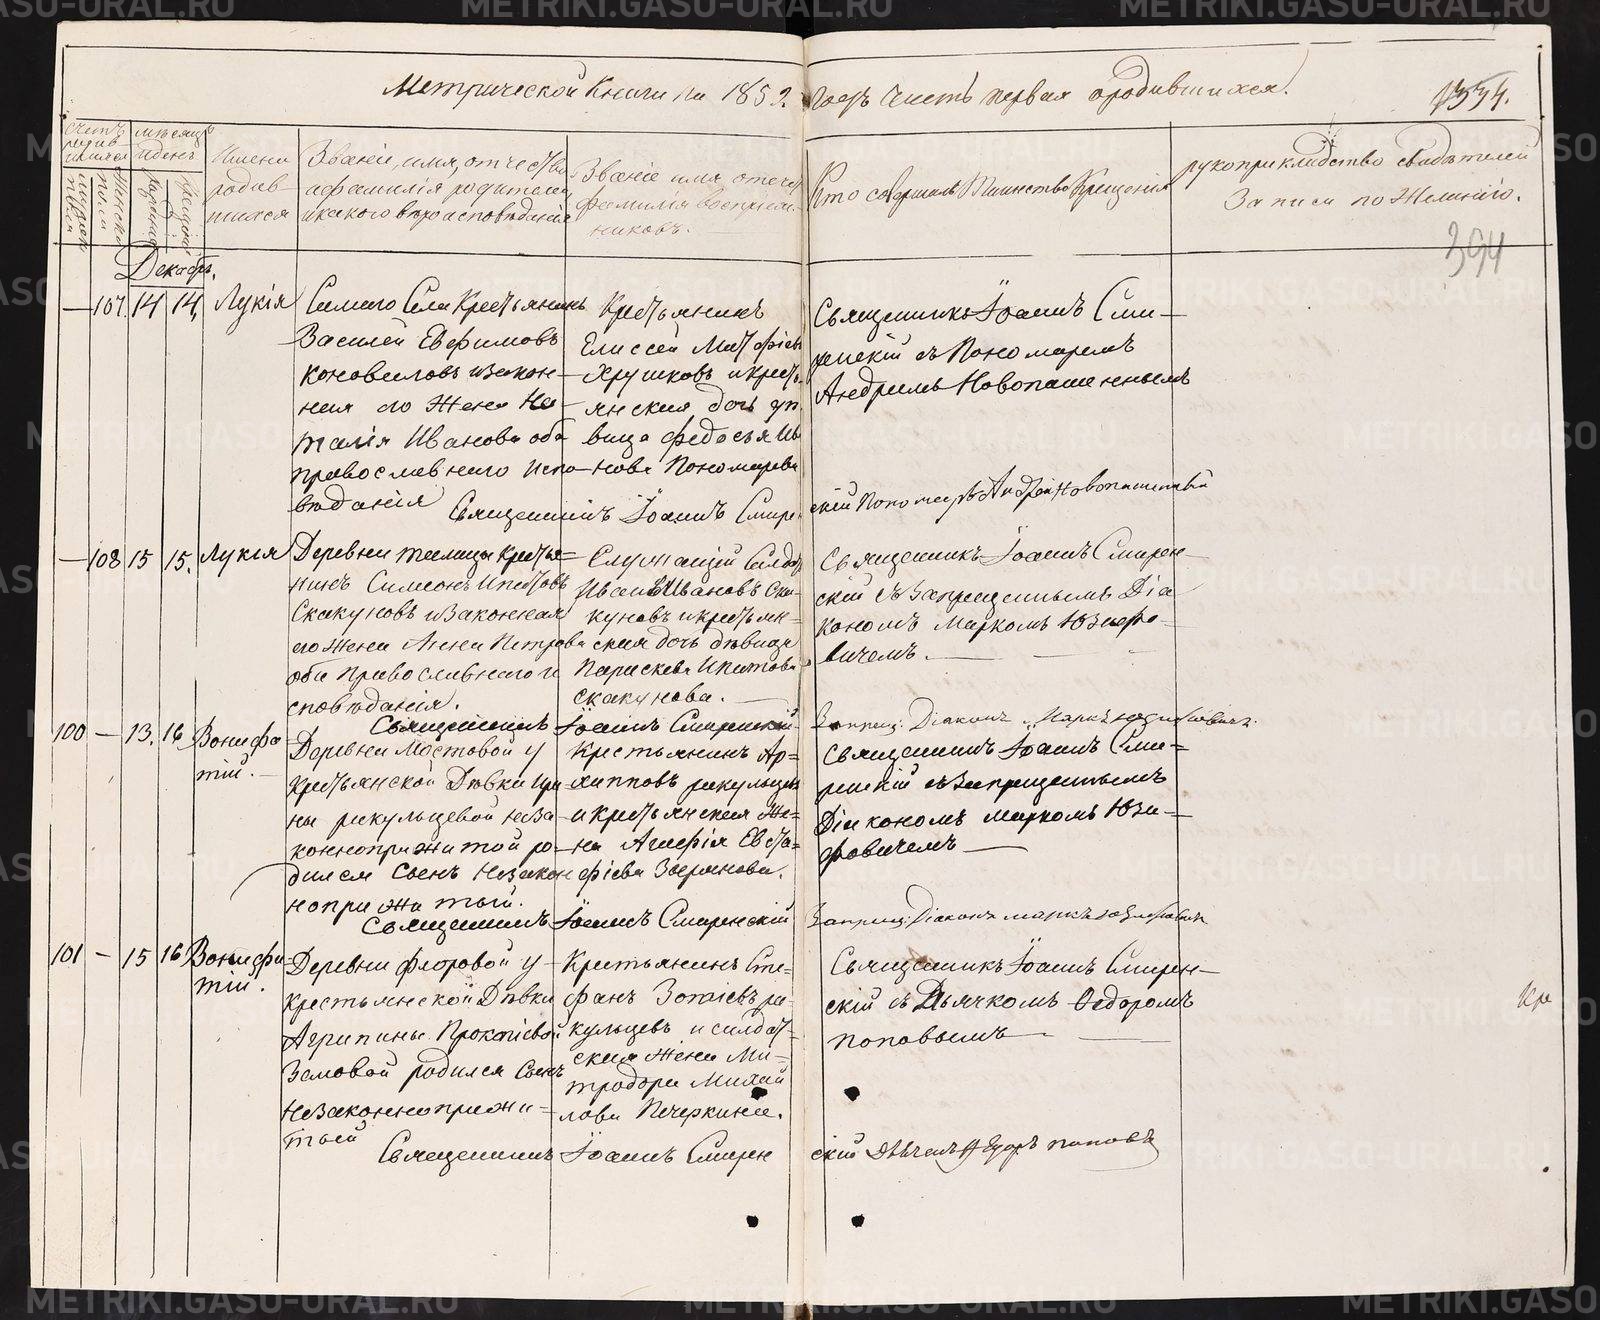 Метрической Книги на 1852. Годъ Часть первая о родившихся.
1334.
394
Счетъ родив-шихся
мѣсяцъ и день
Имена родив-шихся
Званіе, имя, отчество и фамилія родителей и какого вѣроисповѣданія
Званіе имя отчес. фамилія воспріем-никовъ.
Кто совершалъ Таинство Крещенія
рукоприкладство свидѣтелей Записи по Желанію.
Декабрь.
— 107. 14 14, Лукія
Самаго Села Крестьянинъ
Василей Евфимовъ
Коноваловъ и закон-
ная его Жена На-
талія Иванова оба
православнаго испо-
вѣданія
Крестьянинъ
Елиссей Матфіевъ
Хрушковъ и кресть-
янская дочь дѣ
вица федосья Ив
нова Пономарева
Священникъ Іоаннъ Сми-
ренскій съ Пономаремъ
Андреемъ Новопашеннымъ
Священникъ Іоаннъ Смирен
скій Пономарь Андрей Новопашенный
— 108 15 15. Лукія
Деревни Крестья=
нинъ Симеонъ Ипатовъ
Скакуновъ и Законная
его Жена Анна Петрова
оба Православнаго и
сповѣданія.
Служащій Солдатъ
Иванъ Ивановъ Ска-
куновъ и крестьян=
ская дочь дѣвица
Параскева Ипатова
Скакунова.
Священникъ Іоаннъ Смирен-
скій съ Запрещеннымъ Діа
кономъ Маркомъ Юзефо-
вичемъ.
Священникъ Іоаннъ Смиренскій
Запрещ: Діаконъ Маркъ Юзефовичь.
100 — 13. 16 Вонифа-
тій.
Деревни Мостовой у
Крестьянской Дѣвки Ири
ны ракульцевой неза-
конноприжитой ро-
дился Сынъ незакон
ноприжитый.
Крестьянинъ Ар=
хипповъ ракульцевъ
и крестьянская Же=
на Агафія Евста=
фіева Зверянова.
Священникъ Іоаннъ Сми=
ренскій съ Запрещеннымъ
Діакономъ Маркомъ Юзе-
фовичемъ
Священникъ Іоаннъ Смиренскій
Запрещ: Діаконъ Маркъ Юзефовичь
101 — 15 16 Вонифа-
тій.
Деревни Флоровой у
крестьянской Дѣвки
Агрипины Прокопіевой
Земовой родился Сынъ
незаконноприжи=
тый
Крестьянинъ Сте=
фанъ Зотіевъ ра-
кульцевъ и солдат-
ская жена Ми-
тродора Михай
лова Печеркина.
Священникъ Іоаннъ Смирен-
скій съ Дьячкомъ Ѳедоромъ
Поповымъ
Священникъ Іоаннъ Смирен
скій Дьячекъ Ѳедоръ Поповъ
METRIKI.GASU-URAL.RU